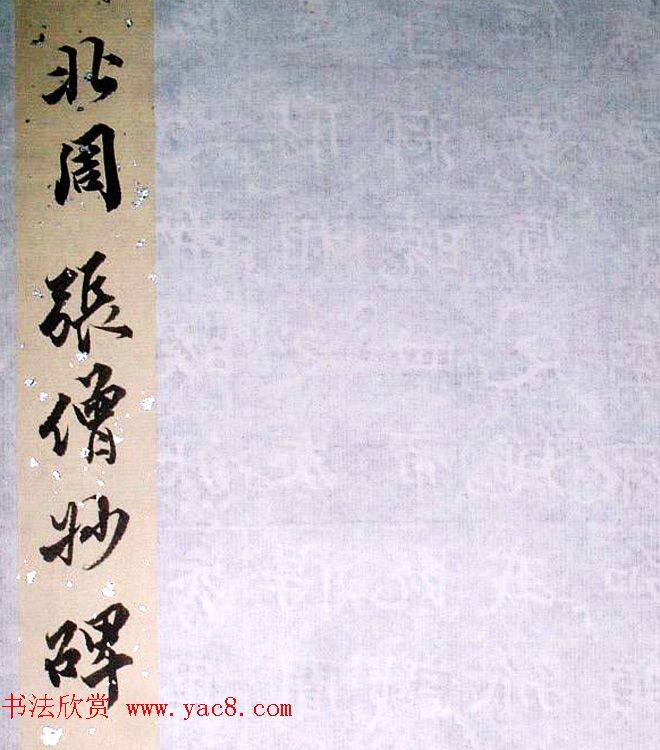 北周 張僧妙碑
书法欣赏 www.yac8.com